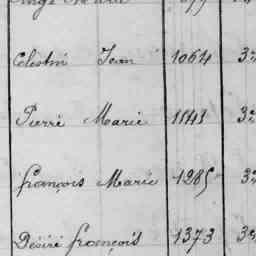 Célestin Jean 1064 3e
Pierre Marie 1143 3e
françois Marie 1285 3e
Désiré françois 1373 3e